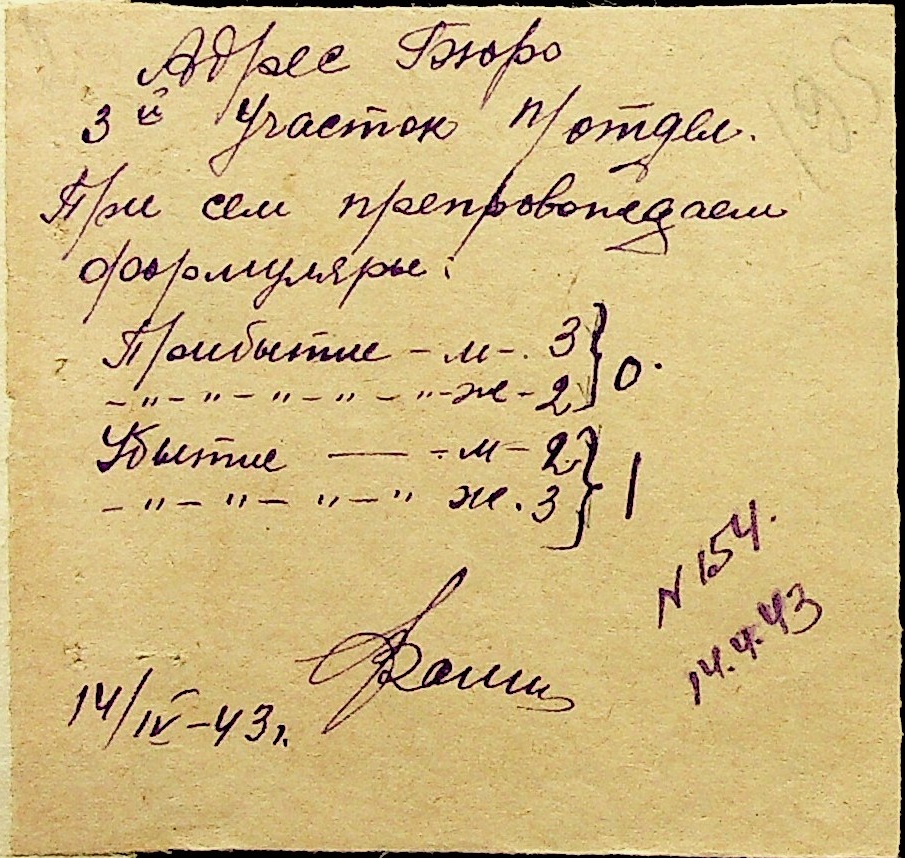 Адрес Бюро
3й Участок п/отдел.
При сем препровождаем
формуляры:
Прибытие - м-. 3
-"-"-"-"-"-ж-2 } 0.
Убытие — - м-2
-"-"-"-" ж. 3 } 1
N 154.
14.4.43
14/IV-43 г.
195